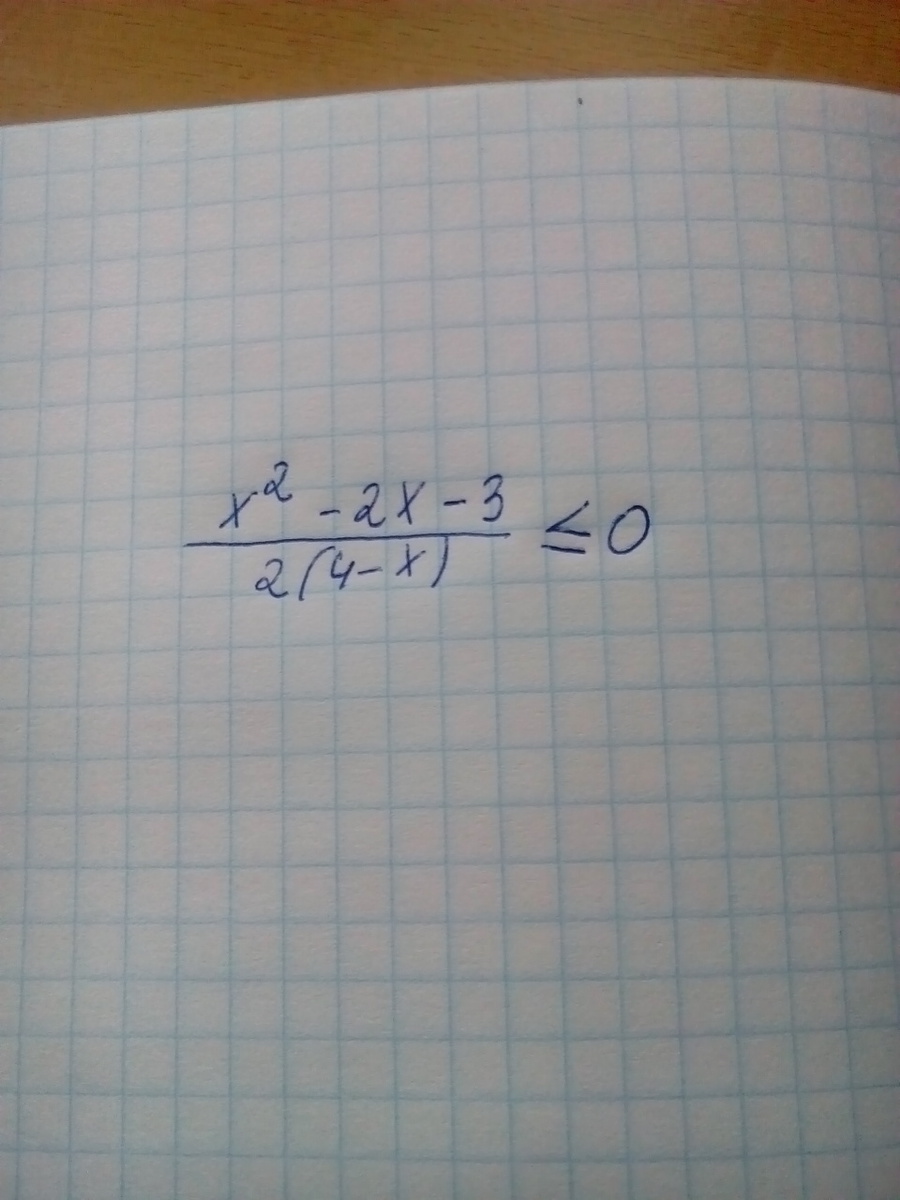 x² - 2x - 3
2(4 - x)
≤ 0